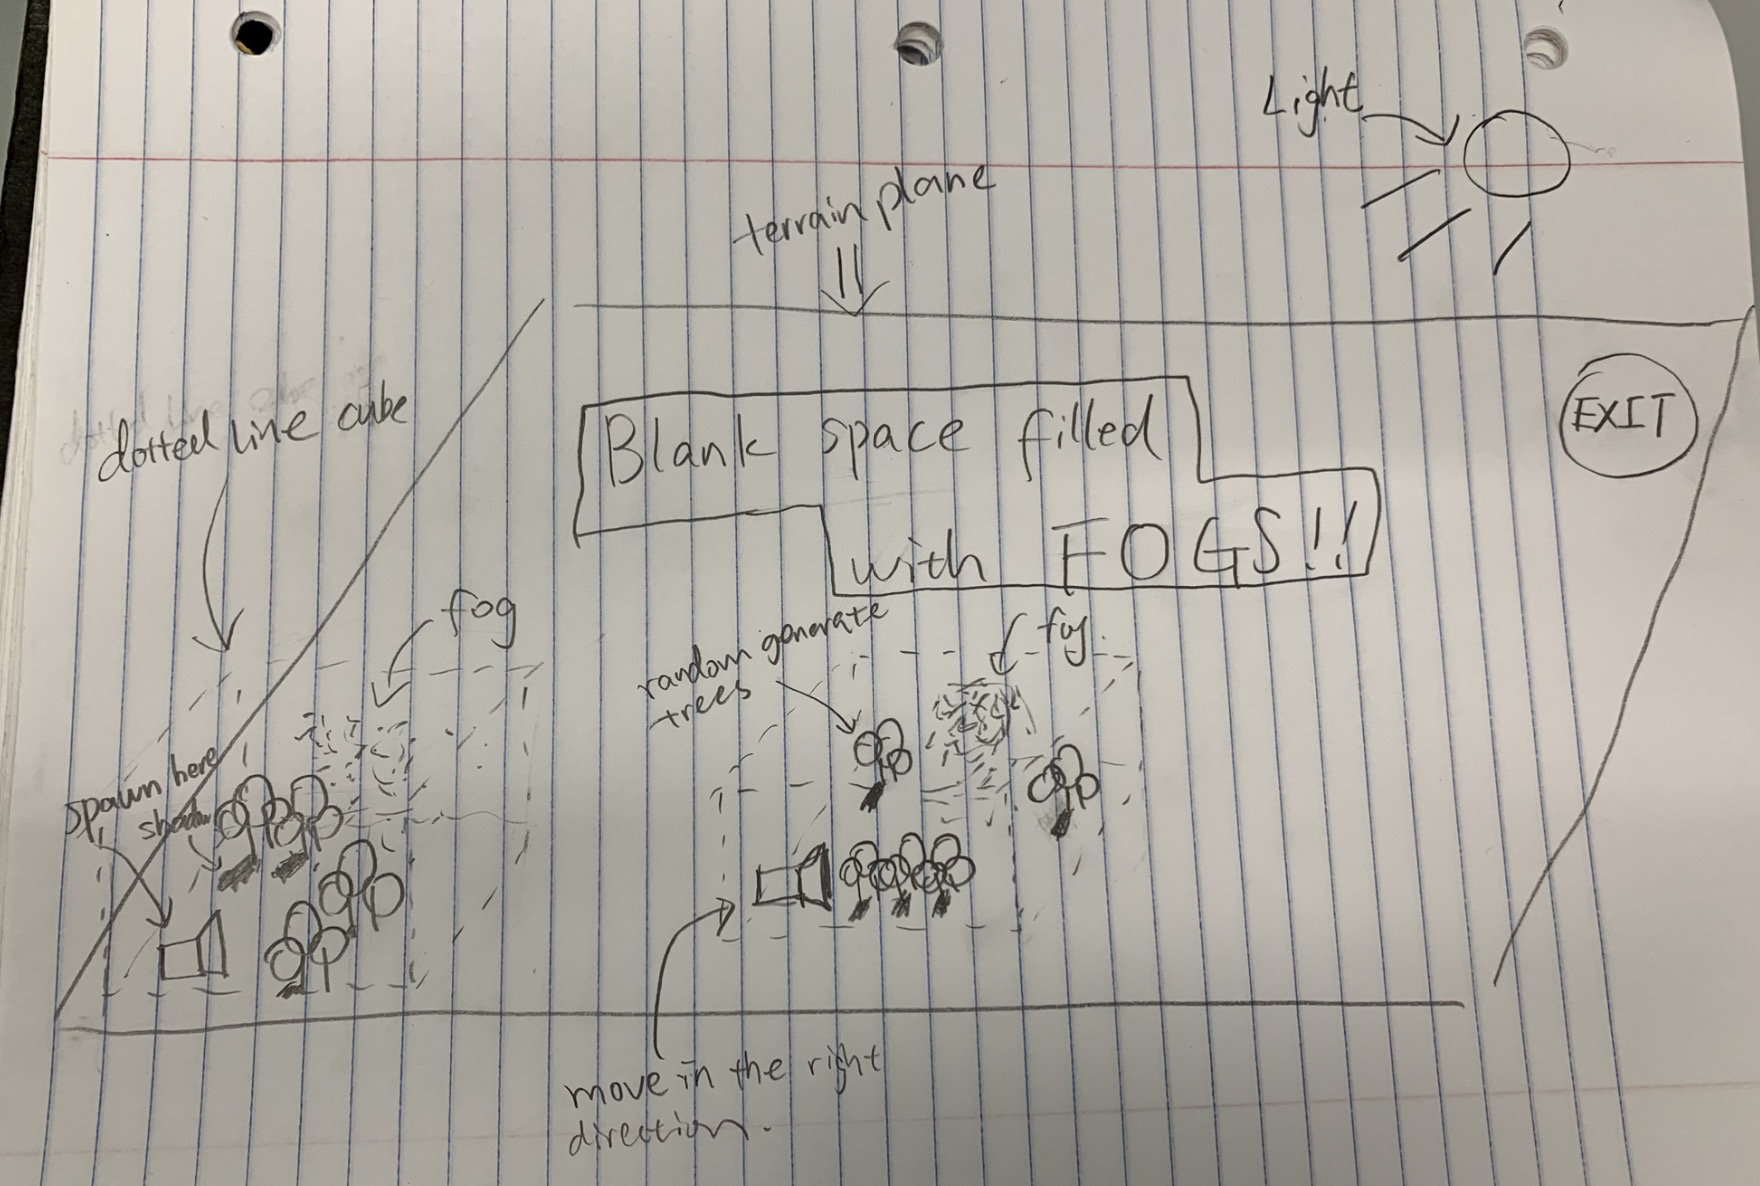 Light
terrain plane
EXIT
dotted line cube
Blank space filled
with FOGS!!
fog
fog.
random generate
trees
spawn here
shadow
move in the right
direction.